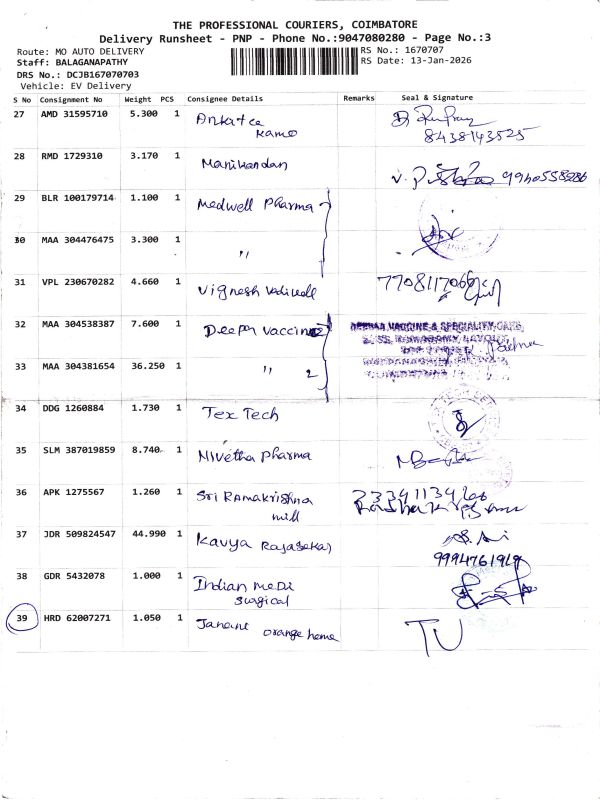 THE PROFESSIONAL COURIERS, COIMBATORE
Delivery Runsheet - PNP - Phone No.:9047080280 - Page No.:3
Route: MO AUTO DELIVERY
RS No.: 1670707
Staff: BALAGANAPATHY
RS Date: 13-Jan-2026
DRS No.: DCJB167070703
Vehicle: EV Delivery
S No Consignment No Weight PCS Consignee Details Remarks Seal & Signature
27 AMD 31595710 5.300 1
8438143525
28 RMD 1729310 3.170 1 Manikandan
29 BLR 100179714 1.100 1 Medwell Pharma
30 MAA 304476475 3.300 1 "
31 VPL 230670282 4.660 1 Vignesh
32 MAA 304538387 7.600 1 Deepa Vaccine
VACCINE & SPECIALITY CARE
33 MAA 304381654 36.250 1 " 2
34 DDG 1260884 1.730 1 Tex Tech
35 SLM 387019859 8.740 1 Nivetha Pharma
36 APK 1275567 1.260 1 Sri Ramakrishna
mill
37 JDR 509824547 44.990 1 Kavya Rajasekar
38 GDR 5432078 1.000 1 Indian Medi
Surgical
39 HRD 62007271 1.050 1
orange home
TU